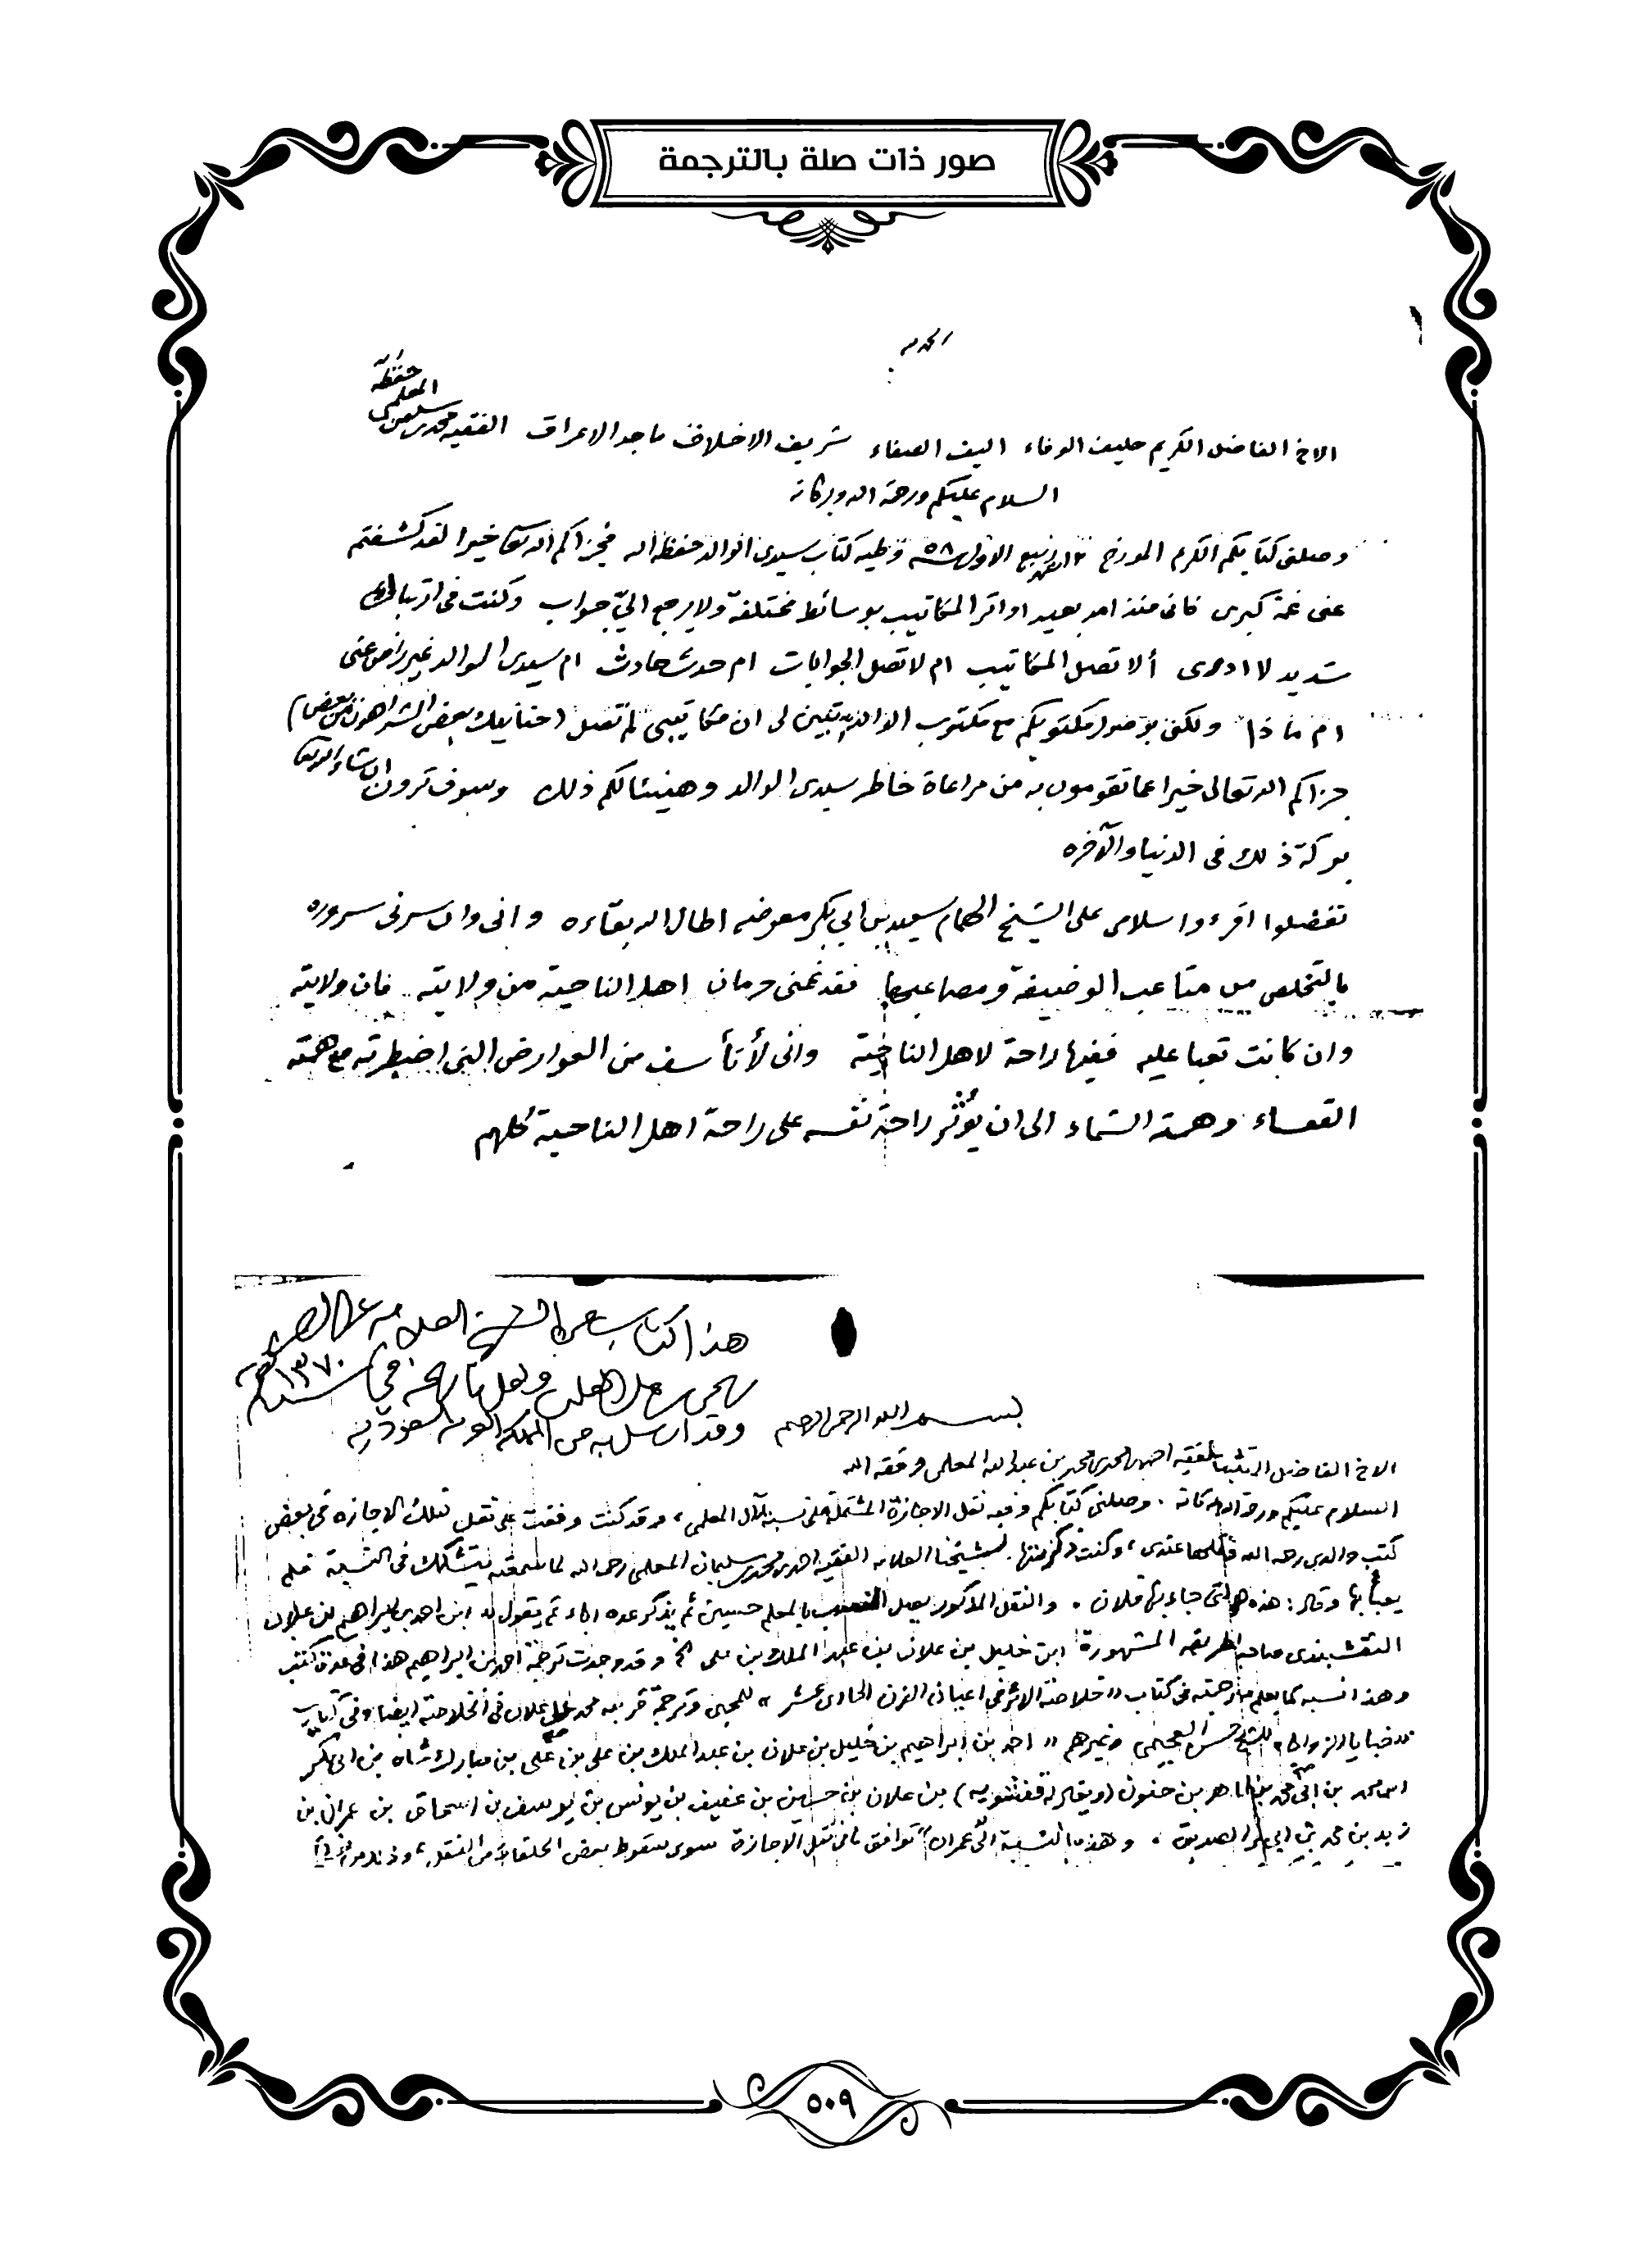 صور ذات صلة بالترجمة
الحمد لله
حفظه الله
المعلمي
الاخ الفاضل الكريم حليف الوفاء اليف الصفاء شريف الاخلاق ماجد الاعراق الفقيه محمد بن سليمن
السلام عليكم ورحمة الله وبركاته
وصلني كتابكم الكريم المورخ ربيع الاول ٥٨ وطيه كتاب سيدي الوالد حفظه الله فجزاكم الله تعالى خيرا لقد كشفتم
عني غمة كبرى فاني منذ امد بعيد اواتر المكاتيب بوسائط مختلفة ولا يرجع اليّ جواب وكنت في ارتباك
شديد لا ادري ألا تصل المكاتيب ام لا تصل الجوابات ام حدث حادث ام سيدي الوالد غير راض عني
ام ماذا ولكن بوصول مكتوبكم مع مكتوب الوالد تبين لي ان مكاتيبي لم تصل (حنانيك بعض الشر اهون من بعض)
جزاكم الله تعالى خيرا عما تقومون به من مراعاة خاطر سيدي الوالد وهنيئا لكم ذلك وسوف ترون ان شاء الله تعالى
بركة ذلك في الدنيا والآخره
تفضلوا اقرءوا سلامي على الشيخ الهمام سعيد بن ابي بكر معوضه اطال الله بقاءه واني وان سرني سروره
بالتخلص من متاعب الوضيفة ومصاعبها فقد غمني حرمان اهل الناحية من ولايته فان ولايته
وان كانت تعبا عليه ففيها راحة لاهل الناحية واني لأتأسف من العوارض التي اضطرته مع همته
القعساء وهمته الشماء الى ان يؤثر راحة نفسه على راحة اهل الناحية كلهم
هذا كتاب من الشيخ العلامه
ولعل تاريخه في سنة ١٣٧٠
وقد ارسل به من المملكة العربية السعودية
بسم الله الرحمن الرحيم
الاخ الفاضل الفقيه احمد بن محمد بن عبد الله المعلمي وفقه الله
السلام عليكم ورحمة الله وبركاته . وصلني كتابكم وفيه نقل الاجازة المشتملة على نسبة لآل المعلمي ، وقد كنت وقفت على نقل تلك الاجازه في بعض
كتب والدي رحمه الله فنقلتها عندي ، وكنت ذكرتها لشيخنا العلامه الفقيه احمد بن محمد بن سليمان المعلمي رحمه الله لما سمعته يتشكك في النسبة فلم
يعبأ بها وقال : هذه هي التي جاء بها فلان . والنقل المذكور يصل النسب بالمعلم حسين ثم يذكر عدة اباء ثم يقول ابن احمد بن ابراهيم بن علان
النقشبندي صاحب الطريقه المشهورة ابن خليل بن علان بن عبد الملك بن علي الخ وقد وجدت ترجمة احمد بن ابراهيم هذا في عدة كتب
وهذا نسبه كما يعلم من ترجمته في كتاب "خلاصة الاثر في اعيان القرن الحادي عشر" للمحبي وترجمة قريبه محمد علي علان في الخلاصة ايضا وفي كتاب
"خبايا الزوايا" للشيخ حسن العجيمي وغيرهم "احمد بن ابراهيم بن خليل بن علان بن عبد الملك بن علي بن علي بن مبارك شاه بن ابي بكر
بن ابي محمد بن طاهر بن حنون (ويقال له ) بن علان بن حسين بن عفيف بن يونس بن يوسف بن اسحاق بن عمران بن
زيد بن محمد بن ابي بكر الصديق . وهذه النسبة الى عمران توافق ما في نقل الاجازة سوى سقوط بعض الحلقات من النقل ،
٥٠٩